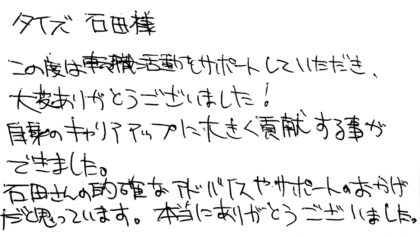 タイズ 石田様
この度は転職活動をサポートしていただき、
大変ありがとうございました！
自身のキャリアアップに大きく貢献する事が
できました。
石田さんの的確なアドバイスやサポートのおかげ
だと思っています。本当にありがとうございました。